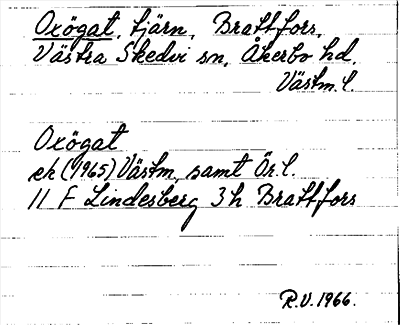 Oxögat, tjärn, Brattfors,
Västra Skedvi sn, Åkerbo hd,
Västm. l.
Oxögat
ek (1965) Västm. samt Ör. l.
11 F Lindesberg 3 h Brattfors
R.V. 1966.